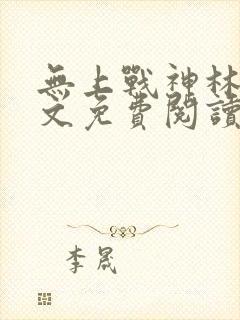 無上戰神林
文免費閱讀
李晟